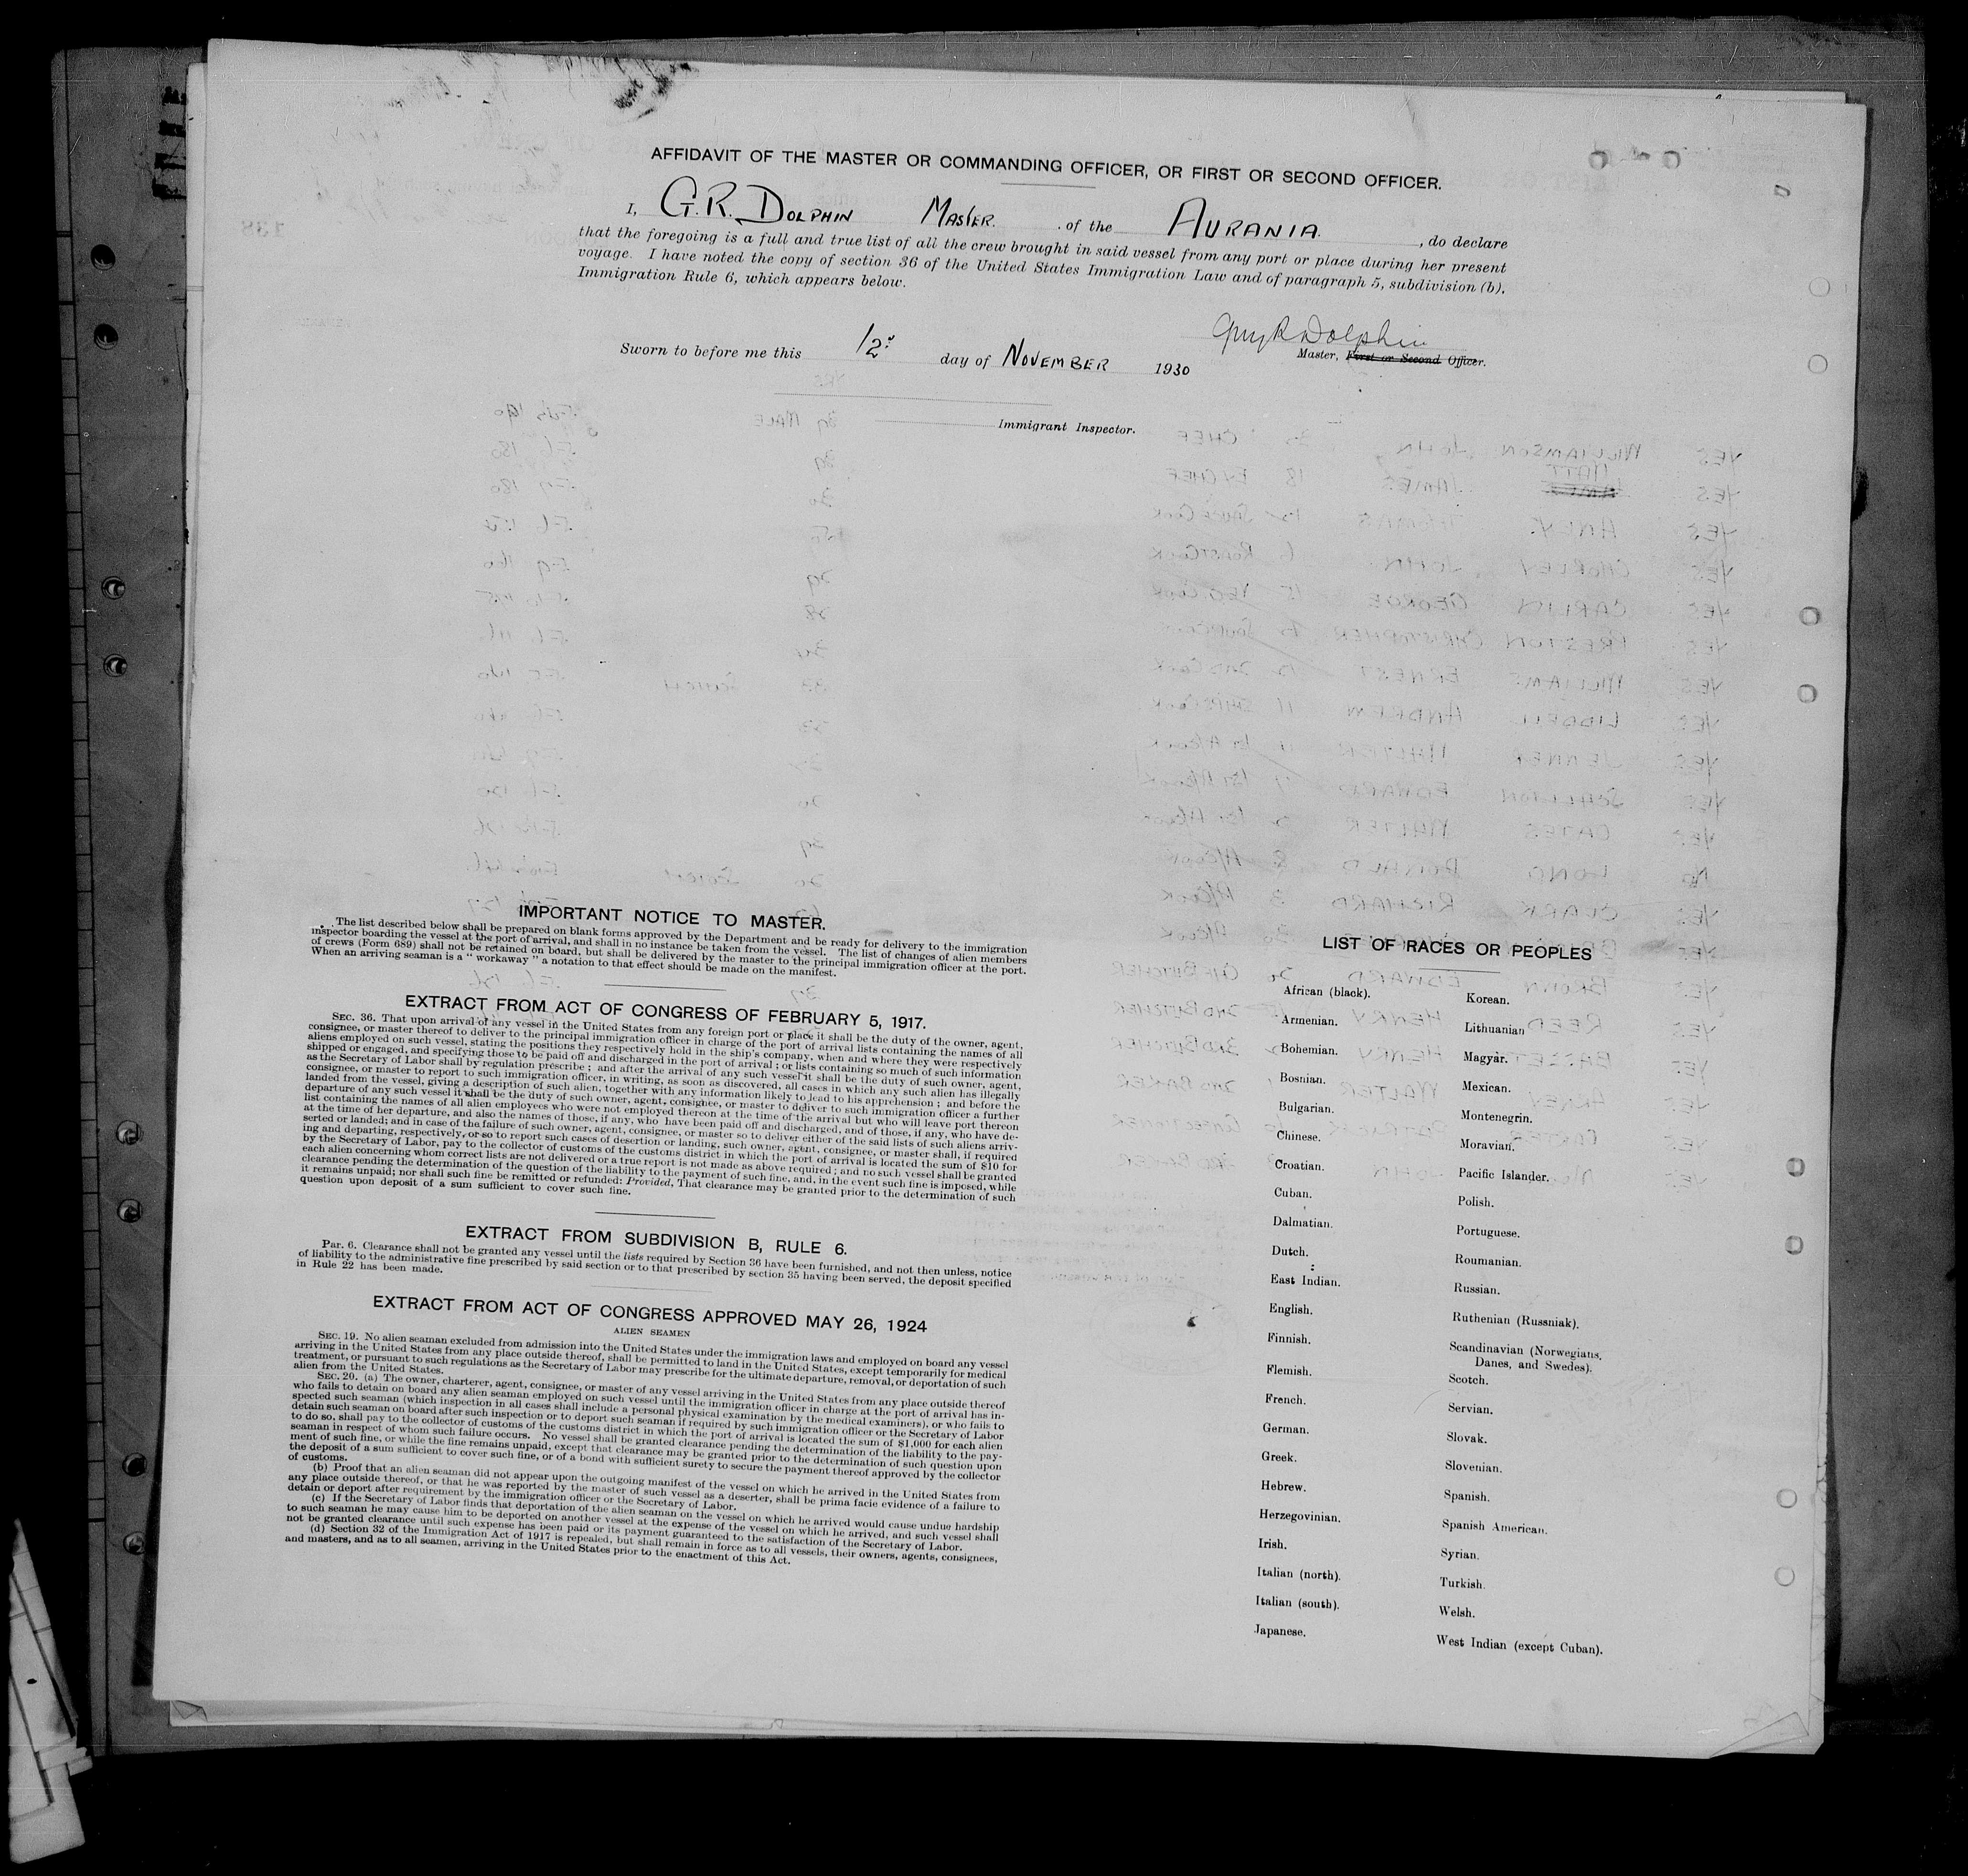 AFFIDAVIT OF THE MASTER OR COMMANDING OFFICER, OR FIRST OR SECOND OFFICER.
I, G.R. DOLPHIN MASTER. of the AURANIA. , do declare
that the foregoing is a full and true list of all the crew brought in said vessel from any port or place during her present
voyage. I have noted the copy of section 36 of the United States Immigration Law and of paragraph 5, subdivision (b).
Immigration Rule 6, which appears below.
Guy R Dolphin
Sworn to before me this 12 day of NOVEMBER 1930
Master, First or Second Officer.
Immigrant Inspector.
IMPORTANT NOTICE TO MASTER.
The list described below shall be prepared on blank forms approved by the Department and be ready for delivery to the immigration
inspector boarding the vessel at the port of arrival, and shall in no instance be taken from the vessel. The list of changes of alien members
of crews (Form 689) shall not be retained on board, but shall be delivered by the master to the principal immigration officer at the port.
When an arriving seaman is a " workaway " a notation to that effect should be made on the manifest.
EXTRACT FROM ACT OF CONGRESS OF FEBRUARY 5, 1917.
SEC. 36. That upon arrival of any vessel in the United States from any foreign port or place it shall be the duty of the owner, agent,
consignee, or master thereof to deliver to the principal immigration officer in charge of the port of arrival lists containing the names of all
aliens employed on such vessel, stating the positions they respectively hold in the ship's company, when and where they were respectively
shipped or engaged, and specifying those to be paid off and discharged in the port of arrival ; or lists containing so much of such information
as the Secretary of Labor shall by regulation prescribe ; and after the arrival of any such vessel it shall be the duty of such owner, agent,
consignee, or master to report to such immigration officer, in writing, as soon as discovered, all cases in which any such alien has illegally
landed from the vessel, giving a description of such alien, together with any information likely to lead to his apprehension ; and before the
departure of any such vessel it shall be the duty of such owner, agent, consignee, or master to deliver to such immigration officer a further
list containing the names of all alien employees who were not employed thereon at the time of the arrival but who will leave port thereon
at the time of her departure, and also the names of those, if any, who have been paid off and discharged, and of those, if any, who have de-
serted or landed; and in case of the failure of such owner, agent, consignee, or master so to deliver either of the said lists of such aliens arriv-
ing and departing, respectively, or so to report such cases of desertion or landing, such owner, agent, consignee, or master shall, if required
by the Secretary of Labor, pay to the collector of customs of the customs district in which the port of arrival is located the sum of $10 for
each alien concerning whom correct lists are not delivered or a true report is not made as above required ; and no such vessel shall be granted
clearance pending the determination of the question of the liability to the payment of such fine, and, in the event such fine is imposed, while
it remains unpaid; nor shall such fine be remitted or refunded: Provided, That clearance may be granted prior to the determination of such
question upon deposit of a sum sufficient to cover such fine.
EXTRACT FROM SUBDIVISION B, RULE 6.
Par. 6. Clearance shall not be granted any vessel until the lists required by Section 36 have been furnished, and not then unless, notice
of liability to the administrative fine prescribed by said section or to that prescribed by section 35 having been served, the deposit specified
in Rule 22 has been made.
EXTRACT FROM ACT OF CONGRESS APPROVED MAY 26, 1924
ALIEN SEAMEN
SEC. 19. No alien seaman excluded from admission into the United States under the immigration laws and employed on board any vessel
arriving in the United States from any place outside thereof, shall be permitted to land in the United States, except temporarily for medical
treatment, or pursuant to such regulations as the Secretary of Labor may prescribe for the ultimate departure, removal, or deportation of such
alien from the United States.
SEC. 20. (a) The owner, charterer, agent, consignee, or master of any vessel arriving in the United States from any place outside thereof
who fails to detain on board any alien seaman employed on such vessel until the immigration officer in charge at the port of arrival has in-
spected such seaman (which inspection in all cases shall include a personal physical examination by the medical examiners), or who fails to
detain such seaman on board after such inspection or to deport such seaman if required by such immigration officer or the Secretary of Labor
to do so, shall pay to the collector of customs of the customs district in which the port of arrival is located the sum of $1,000 for each alien
seaman in respect of whom such failure occurs. No vessel shall be granted clearance pending the determination of the liability to the pay-
ment of such fine, or while the fine remains unpaid, except that clearance may be granted prior to the determination of such question upon
the deposit of a sum sufficient to cover such fine, or of a bond with sufficient surety to secure the payment thereof approved by the collector
of customs.
(b) Proof that an alien seaman did not appear upon the outgoing manifest of the vessel on which he arrived in the United States from
any place outside thereof, or that he was reported by the master of such vessel as a deserter, shall be prima facie evidence of a failure to
detain or deport after requirement by the immigration officer or the Secretary of Labor.
(c) If the Secretary of Labor finds that deportation of the alien seaman on the vessel on which he arrived would cause undue hardship
to such seaman he may cause him to be deported on another vessel at the expense of the vessel on which he arrived, and such vessel shall
not be granted clearance until such expense has been paid or its payment guaranteed to the satisfaction of the Secretary of Labor.
(d) Section 32 of the Immigration Act of 1917 is repealed, but shall remain in force as to all vessels, their owners, agents, consignees,
and masters, and as to all seamen, arriving in the United States prior to the enactment of this Act.
LIST OF RACES OR PEOPLES
African (black).
Armenian.
Bohemian.
Bosnian.
Bulgarian.
Chinese.
Croatian.
Cuban.
Dalmatian.
Dutch.
East Indian.
English.
Finnish.
Flemish.
French.
German.
Greek.
Hebrew.
Herzegovinian.
Irish.
Italian (north).
Italian (south).
Japanese.
Korean.
Lithuanian
Magyar.
Mexican.
Montenegrin.
Moravian.
Pacific Islander.
Polish.
Portuguese.
Roumanian.
Russian.
Ruthenian (Russniak).
Scandinavian (Norwegians,
Danes, and Swedes).
Scotch.
Servian.
Slovak.
Slovenian.
Spanish.
Spanish American.
Syrian.
Turkish.
Welsh.
West Indian (except Cuban).